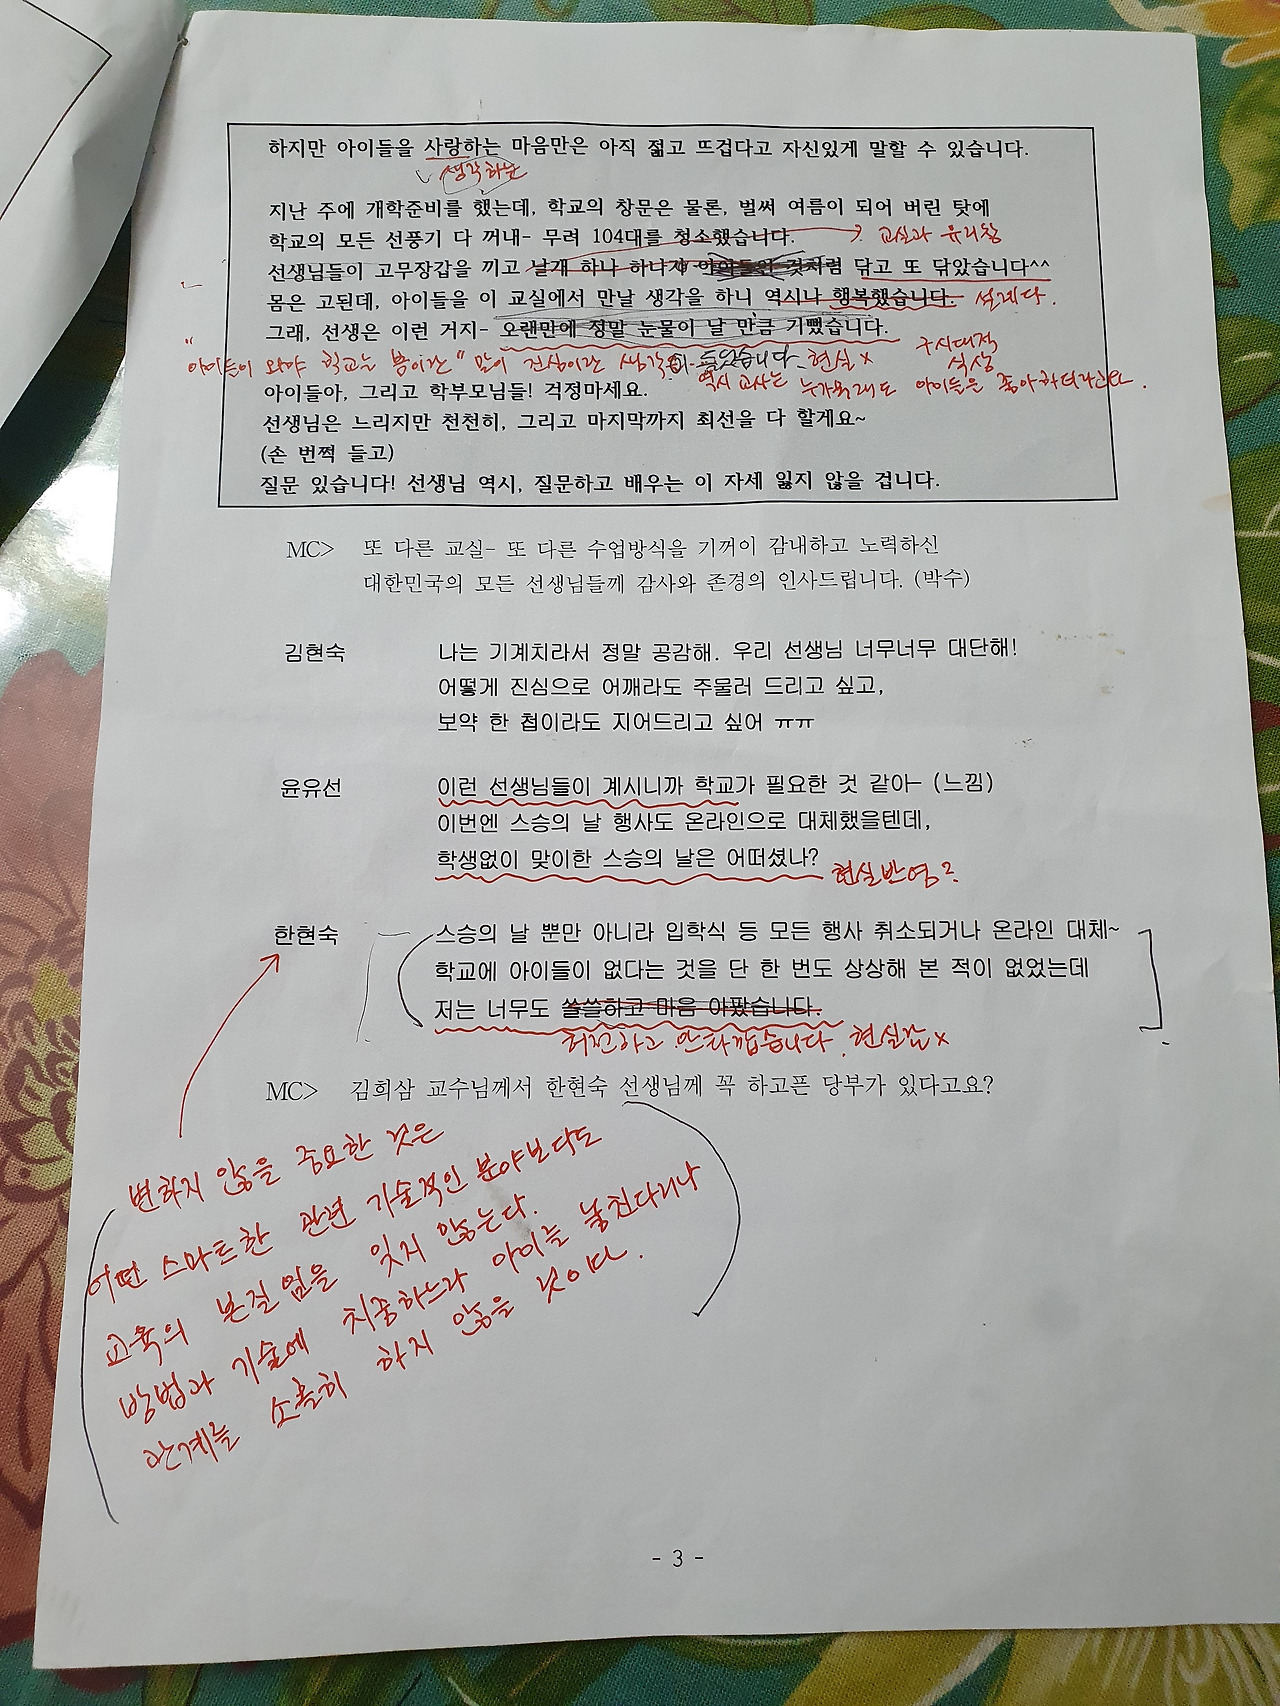 하지만 아이들을 사랑하는 마음만은 아직 젊고 뜨겁다고 자신있게 말할 수 있습니다.
생각하는
지난 주에 개학준비를 했는데, 학교의 창문은 물론, 벌써 여름이 되어 버린 탓에
학교의 모든 선풍기 다 꺼내- 무려 104대를 청소했습니다. ? 교실과 유리창
선생님들이 고무장갑을 끼고 날개 하나 하나가 아이들인 것처럼 닦고 또 닦았습니다^^
몸은 고된데, 아이들을 이 교실에서 만날 생각을 하니 역시나 행복했습니다. 설레다.
그래, 선생은 이런 거지- 오랜만에 정말 눈물이 날 만큼 기뻤습니다.
"아이들이 와야 학교는 봄이란" 말이 진심이란 생각이 들었습니다. 현실 x 구시대적
식상
역시 교사는 누가뭐래도 아이들을 좋아하더라구요.
아이들아, 그리고 학부모님들! 걱정마세요.
선생님은 느리지만 천천히, 그리고 마지막까지 최선을 다 할게요~
(손 번쩍 들고)
질문 있습니다! 선생님 역시, 질문하고 배우는 이 자세 잃지 않을 겁니다.
MC> 또 다른 교실- 또 다른 수업방식을 기꺼이 감내하고 노력하신
대한민국의 모든 선생님들께 감사와 존경의 인사드립니다. (박수)
김현숙 나는 기계치라서 정말 공감해. 우리 선생님 너무너무 대단해!
어떻게 진심으로 어깨라도 주물러 드리고 싶고,
보약 한 첩이라도 지어드리고 싶어 ㅠㅠ
윤유선 이런 선생님들이 계시니까 학교가 필요한 것 같아- (느낌)
이번엔 스승의 날 행사도 온라인으로 대체했을텐데,
학생없이 맞이한 스승의 날은 어떠셨나? 현실반영?
한현숙 스승의 날 뿐만 아니라 입학식 등 모든 행사 취소되거나 온라인 대체~
학교에 아이들이 없다는 것을 단 한 번도 상상해 본 적이 없었는데
저는 너무도 쓸쓸하고 마음 아팠습니다.
허전하고 안타깝습니다. 현실감 x
MC> 김희삼 교수님께서 한현숙 선생님께 꼭 하고픈 당부가 있다고요?
변하지 않을 중요한 것은
어떤 스마트한 관련 기술적인 분야보다도
교육의 본질임을 잊지 않는다.
방법과 기술에 치중하느라 아이들 놓친다거나
관계를 소홀히 하지 않을 것이다.
- 3 -